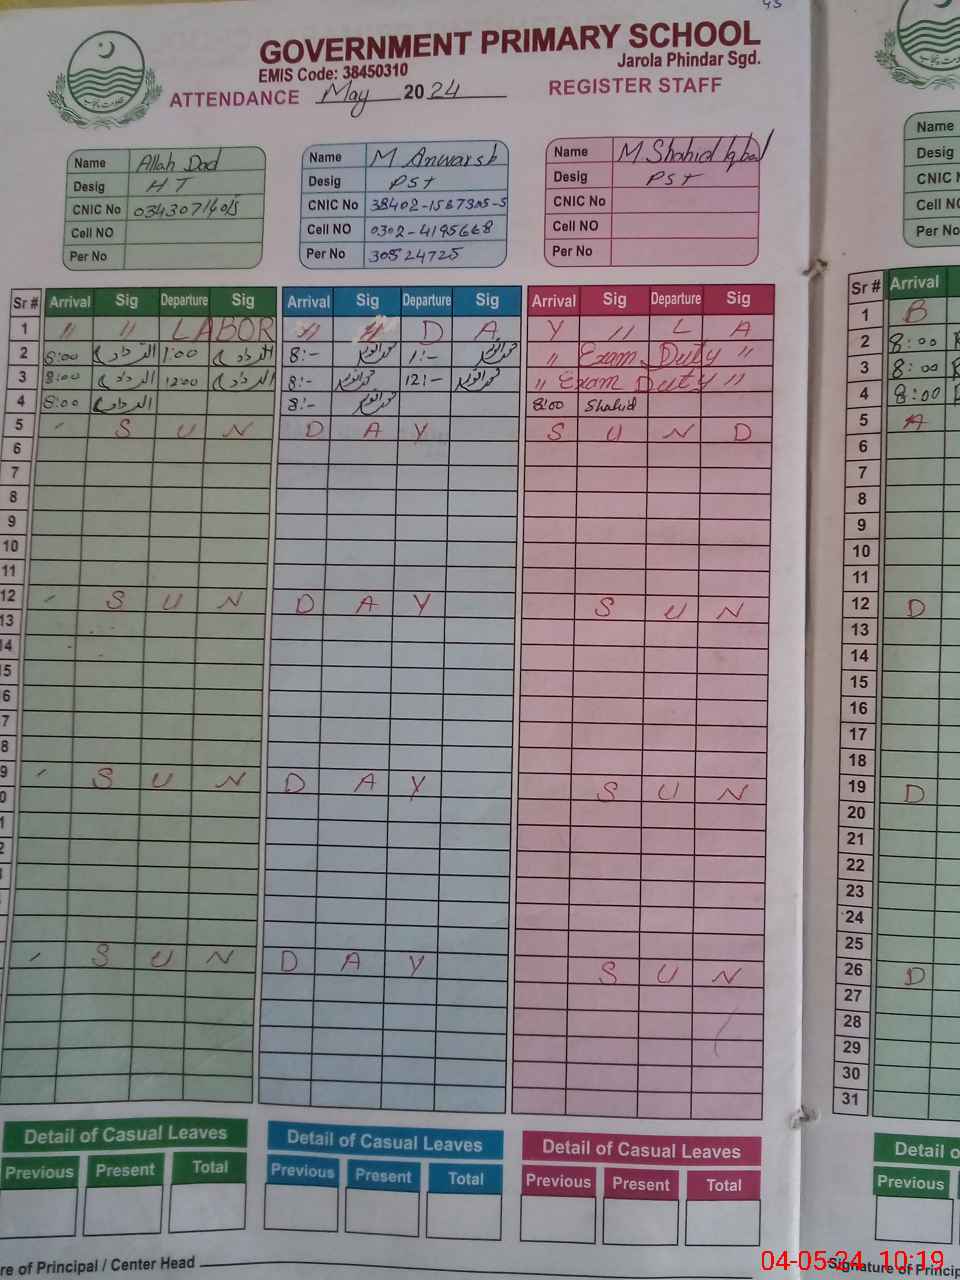 GOVERNMENT PRIMARY SCHOOL
EMIS Code: 38450310 Jarola Phindar Sgd.
ATTENDANCE May 2024 REGISTER STAFF
Name Allah Dad
Desig HT
CNIC No
Cell NO
Per No
Name M Anwar
Desig PST
CNIC No 38402-1587305-5
Cell NO 0302-4195668
Per No 30524725
Name M Shahid Iqbal
Desig PST
CNIC No
Cell NO
Per No
Name
Desig
CNIC
Cell NO
Per No
Sr # Arrival Sig Departure Sig Arrival Sig Departure Sig Arrival Sig Departure Sig Sr # Arrival
1 " " LABOR " " D A Y " L A 1 B
2 8:00 1:00 8:- 1:- " Exam Duty " 2 8:00
3 8:00 12:00 8:- 12:- " Exam Duty " 3 8:00
4 8:00 8:- 8:00 Shahid 4 8:00
5 S U N D A Y S U N D 5 A
6 6
7 7
8 8
9 9
10 10
11 11
12 S U N D A Y S U N 12 D
13 13
14 14
15 15
16 16
17 17
18 18
19 S U N D A Y S U N 19 D
20 20
21
22
23
24
25
S U N D A Y S U N 26 D
27
28
29
30
31
Detail of Casual Leaves Detail of Casual Leaves Detail of Casual Leaves Detail o
Previous Present Total Previous Present Total Previous Present Total Previous
re of Principal / Center Head Signature of Princip
04-05-24 10:19